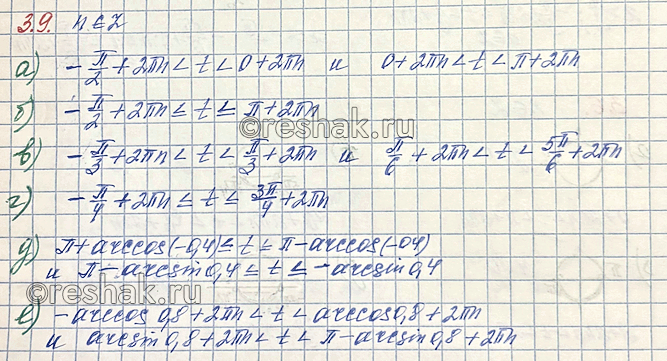 3.9. n ∈ Z
а) -π/2 + 2πn < t < 0 + 2πn и 0 + 2πn < t < π + 2πn
б) -π/2 + 2πn ≤ t ≤ π + 2πn
©reshak.ru
в) -π/3 + 2πn < t < π/3 + 2πn и π/6 + 2πn < t < 5π/6 + 2πn
г) -π/4 + 2πn ≤ t ≤ 3π/4 + 2πn
д) π + arccos(-0,4) ≤ t ≤ π - arccos(-04)
и π - arcsin 0,4 ≤ t ≤ - arcsin 0,4
©reshak.ru
е) -arccos 0,8 + 2πn < t < arccos 0,8 + 2πn
и arcsin 0,8 + 2πn < t < π - arcsin 0,8 + 2πn